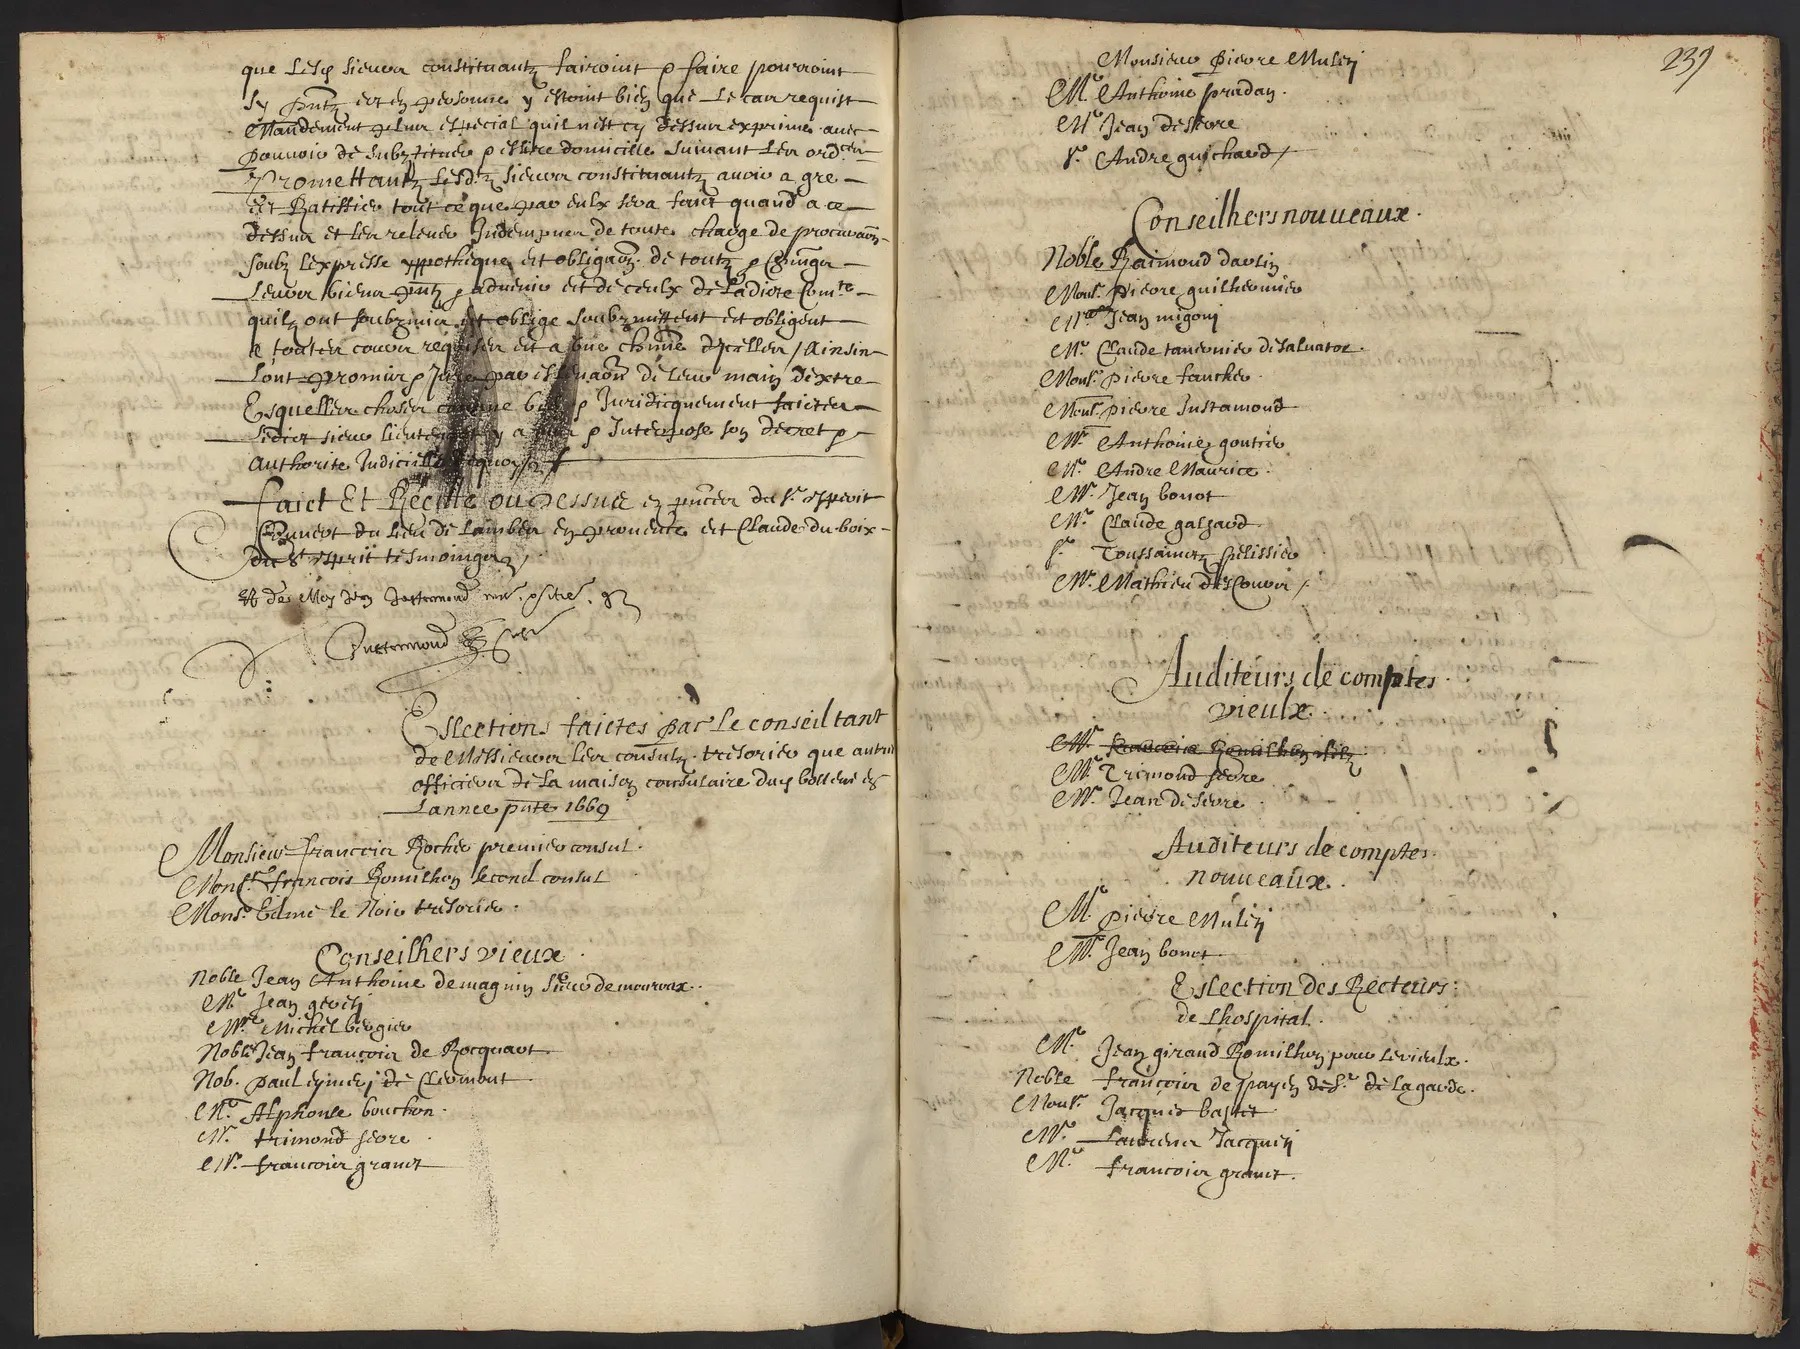 que lesd sieurs constituants fairoint & faire pourroint
sy pntz et en personne y estoint bien que le cas requist
Mandement plus especial quil nest cy dessus exprime avec
pouvoir de substituer & eslire domicille suivant les ord.ces
Promettantz lesd.tz sieurs constituantz avoir a gre
et Ratiffier tout ce que par eulx sera faict quand a ce
dessus et les relever Indempner de toute charge de procura͞on
soubz lexpresse yppotheque et obliga͞on de toutz &
leurs biens pntz & advenir et de ceulx de ladicte Com.te
quilz ont soubzmis et oblige soubzmittent et obligent
a toutes cours requises et a une chun͞e dycelles / Ainsin
Lont promis & Jure par esleva͞on de leur main dextre
Esquelles choses comme bien & Juridicquement faictes
ledict sieur lieutenant y a mis & Interpose son decret &
authorite Judicielle
Faict Et Récitté ou dessus en pñces du s.r esperit
du lieu de Lambesc en provence et Claude du boix
du S.t esprit tesmoings /
Et de Moy Jean Justamond
Justamond
Eslections faictes par le conseil tant
de Messieurs les consulz tresorier que autres
officiers de la maison consulaire duq bollene en
Lannee pn͞te 1669
Monsieur francois Rochier premier consul .
Mons.r francois Romilhon second consul
Mons.r Edme le Noir tresorier .
Conseilhers vieux .
Noble Jean Anthoine de magnin sieur de
M.e Jean
M.e Michel bergier
Noble Jean francois de Rocquart
Nob. paul eymerj de Clermont
M.e Alphonse bouchon .
M.e trimond seore .
M.e francois granet
239
Monsieur Pierre Mulin
M.e Anthoine pradan .
M.e Jean deseore
s.r Andre guichard /
Conseilhers nouveaux .
Noble Raimond davlin
Mons.r Pierre guilhermier
M.e Jean migoni
M.e Claude tavernier de salvator .
Mons.r pierre faucher .
Mons.r pierre Justamond
M.e Anthoine goutier
M.e Andre Maurice .
M.e Jean bonot
M.e Claude galhard .
s.r Toussaintz pelissier
M.e Mathieu descours /
Auditeurs de comptes
vieulx .
M.e francois Romilhon filz
M.e Trimond seore
M.e Jean deseore .
Auditeurs de comptes
nouveaux .
M.e pierre Mulin
M.e Jean bonot
Eslection des Recteurs
de Lhospital .
M.e Jean giraud Romilhon pour levieulx .
Noble francois de payen de s.r de lagarde .
Mons.r Jacques bastet
M.e Laurens Jacquin
M.e francois granet .